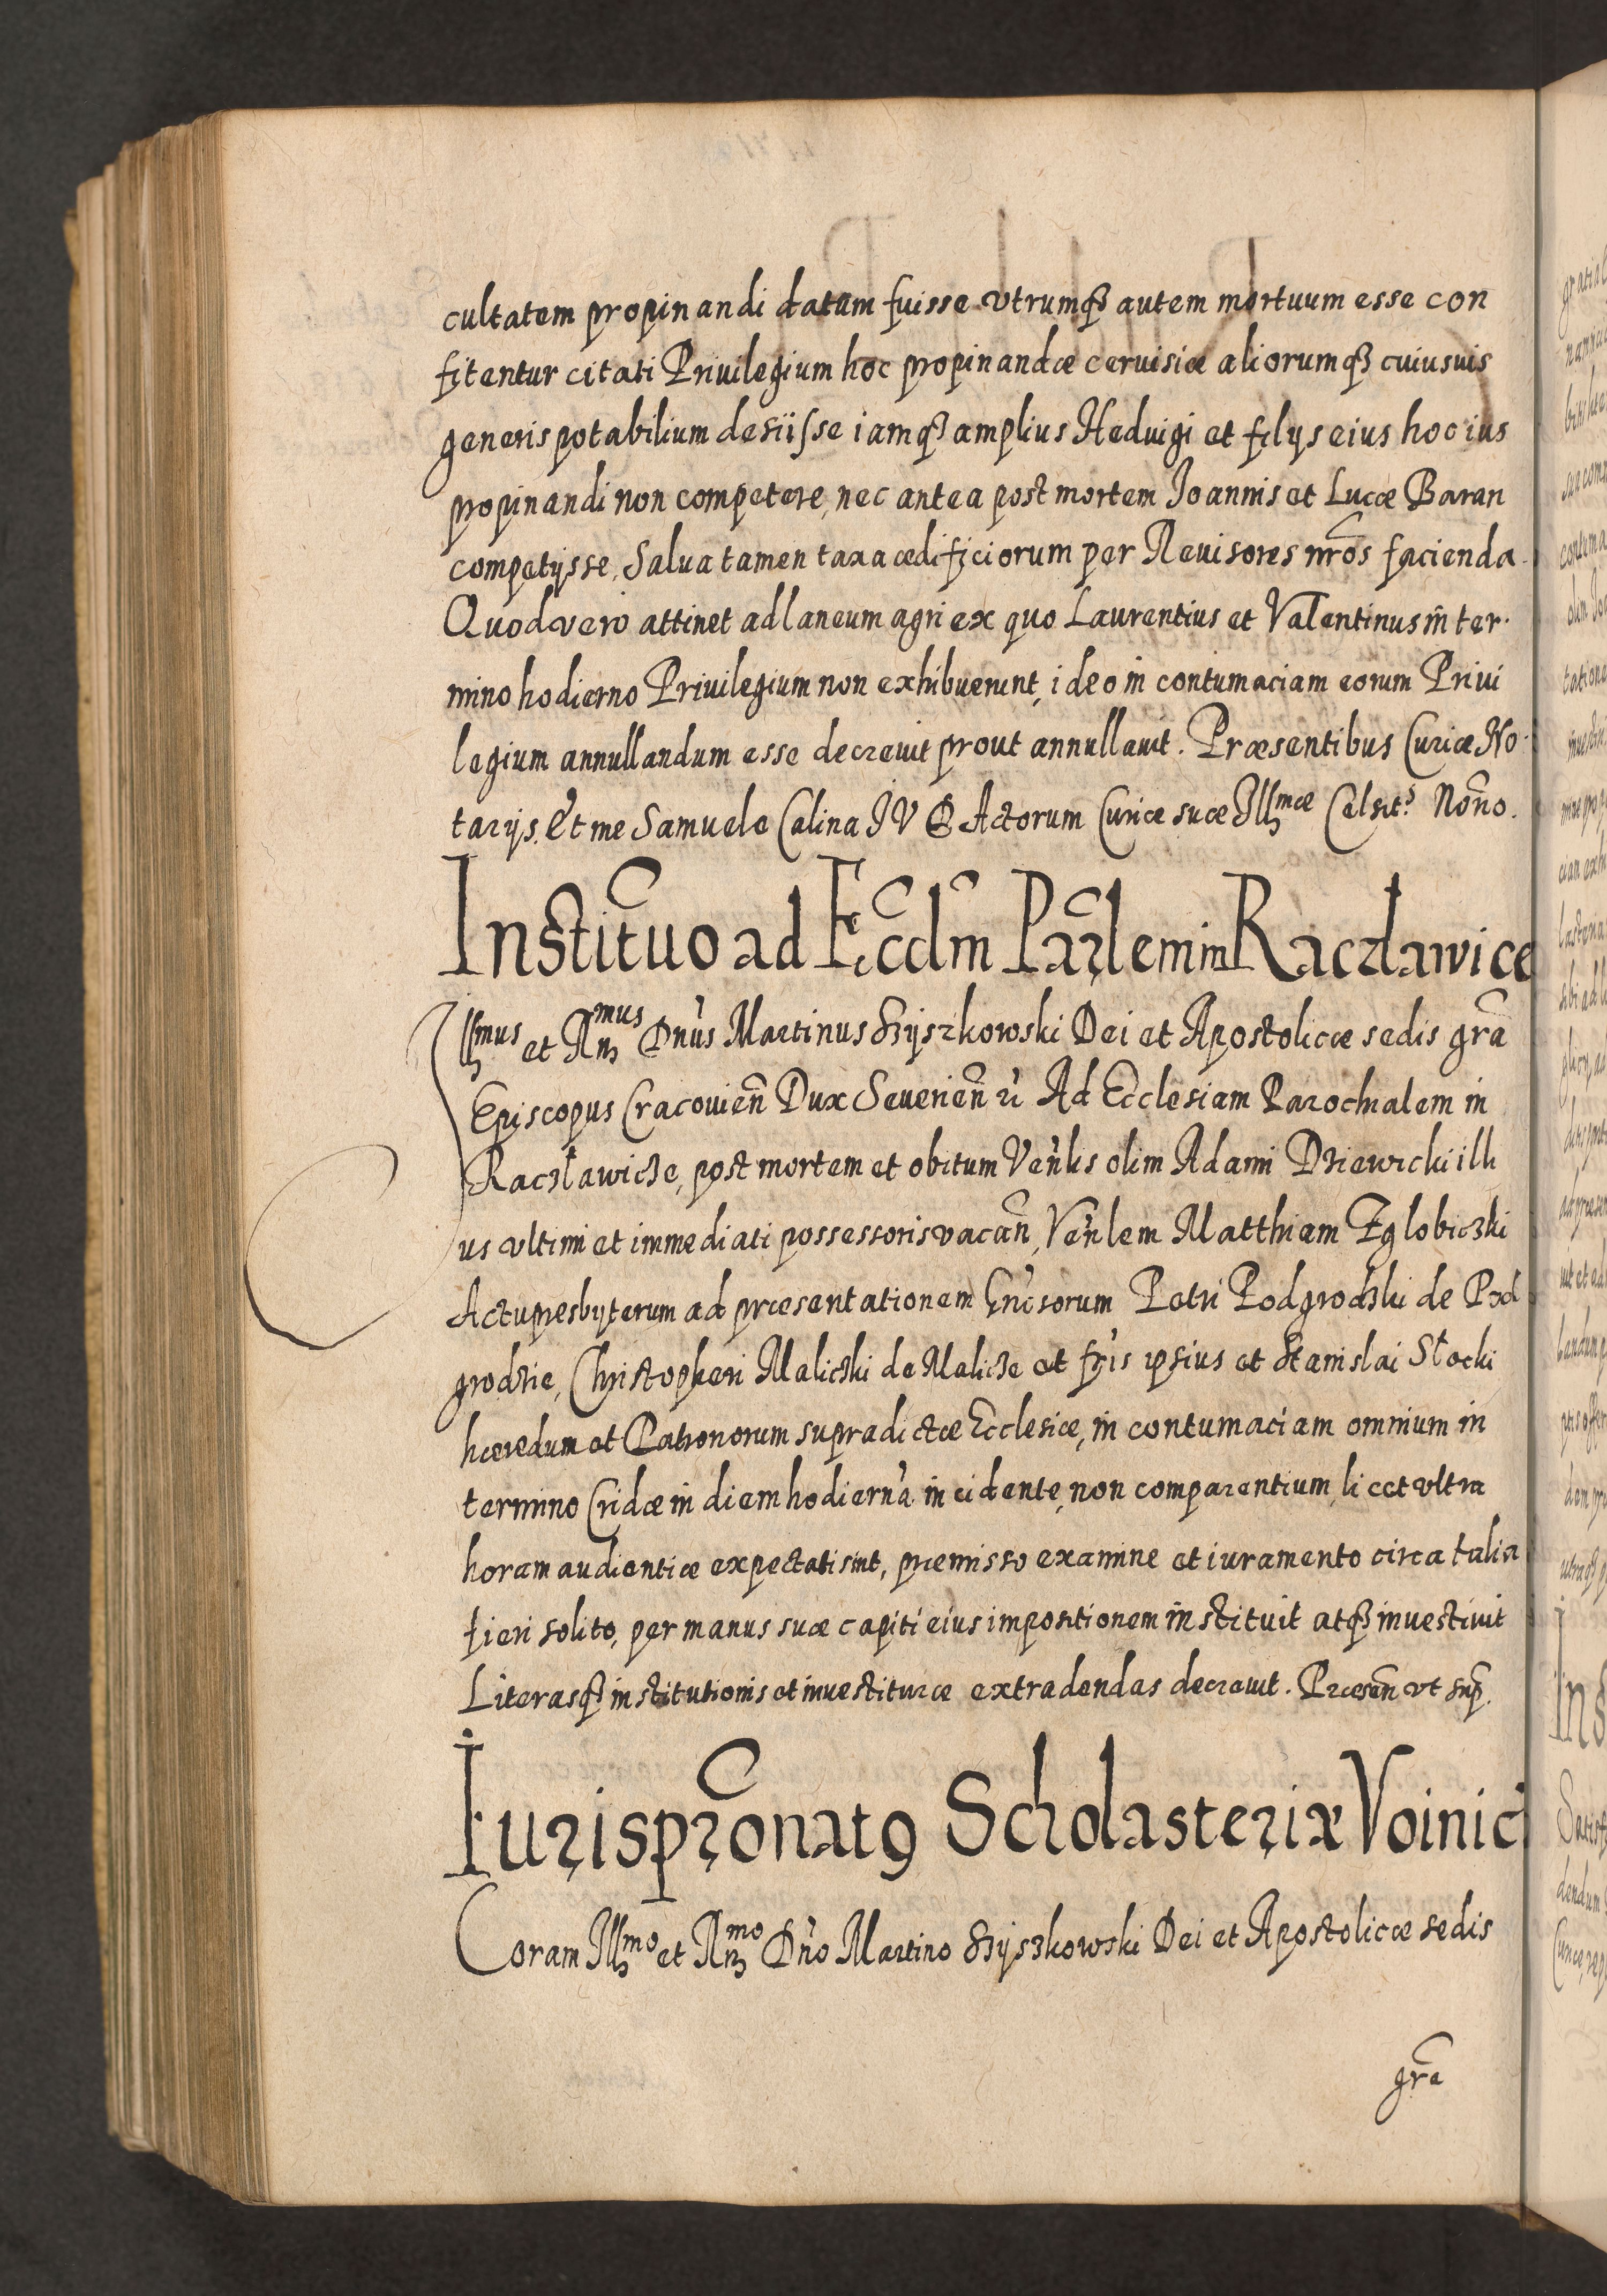 cultatem propinandi datam fuisse utrumqꝫ autem mortuum esse con
fitentur citati Privilegium hoc propinandæ cervisiæ aliorumqꝫ cuiusvis
generis potabilium desiisse iamqꝫ amplius Hedvigi et filys eius hoc ius
propinandi non competere, nec antea post mortem Joannis et Lucæ Baran
competysse, Salva tamen taxa ædificiorum per Revisores nr̃os facienda.
Quod vero attinet ad laneum agri ex quo Laurentius et Valentinus in ter.
mino hodierno Privilegium non exhibuerunt, ideo in contumaciam eorum Privi
legium annullandum esse decrevit prout annullavit. Præsentibus Curiæ No.
tarijs. Et me Samuele Calina JVD Actorum Curiæ suæ Illmæ Celsit.s Nõno.
Institũo ad Eccl̃m Par̃lem in Raczławice
Illmus et Rmus Dn̄us Martinus Szyszkowski Dei et Apostolicæ sedis gr̃a
Episcopus Cracovień Dux Severień ꝛc̃ Ad Ecclesiam Parochialem in
Raczławicze, post mortem et obitum Veñlis olim Adami Drzewicki illi
us ultimi et immediati possessoris vacañ, Veñlem Matthiam Zglobiczki
Actupresbyterum ad præsentationem Gñsorum Petri Podgrodzki de Pod
grodzie, Christopheri Maliczki de Malicze et fr̃is ipsius et Stanislai Stocki
hæredum et Patronorum supradictæ Ecclesiæ, in contumaciam omnium in
termino Cridæ in diem hodiernã incidente, non comparentium, licet ultra
horam audientiæ expectati sint, præmisso examine et iuramento circa talia
fieri solito, per manus suæ capiti eius impositionem instituit atqꝫ investivit
Literasqꝫ institutionis et investituræ extradendas decrevit. Præseñ ut sup̃.
Iurispr̃onatꝰ Scholasteriæ Voinic̃
Coram Illmo et Rmo Dñо Martino Szyszkowski Dei et Apostolicæ sedis
gr̃a